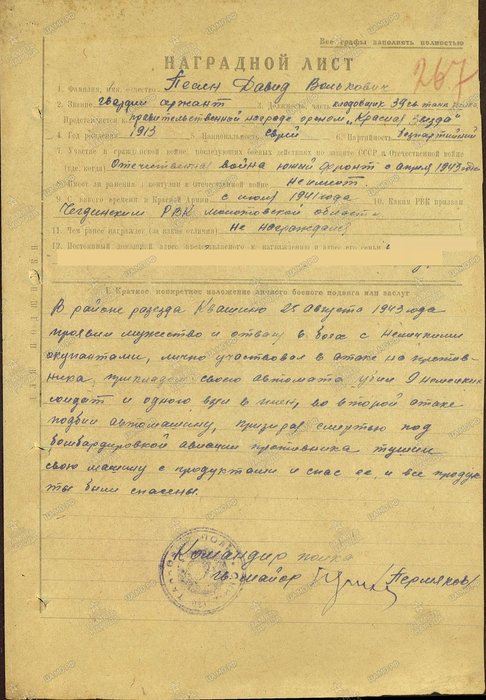 Все графы заполнять полностью
НАГРАДНОЙ ЛИСТ
267
1. Фамилия, имя, отчество Давид Волькович
2. Звание гвардии сержант 3. Должность, часть кладовщик 39 гв. танк. полка
Представляется к правительственной награде орденом „Красная Звезда"
4. Год рождения 1913 5. Национальность еврей 6. Партийность беспартийный
7. Участие в гражданской войне, последующих боевых действиях по защите СССР и Отечественной войне
(где, когда) Отечественная война южный фронт с апреля 1943 года
8. Имеет ли ранения и контузии в Отечественной войне не имеет
9. С какого времени в Красной Армии с июля 1941 года 10. Каким РВК призван
РВК Молотовской области
11. Чем ранее награжден (за какие отличия) не награждался
12. Постоянный домашний адрес представляемого к награждению и адрес его семьи
I. Краткое конкретное изложение личного боевого подвига или заслуг
В районе разезда Квашино 28 августа 1943 года
проявил мужество и отвагу в боях с немецкими
окупантами, лично участвовал в атаке на против-
ника, прикладом своего автомата убил 9 немецких
солдат и одного взял в плен, во второй атаке
подбил автомашину, призирая смертью под
бомбардировкой авиации противника тушил
свою машину с продуктами и спас ее, и все продук-
ты были спасены.
Командир полка
гв. майор /Пермяков/